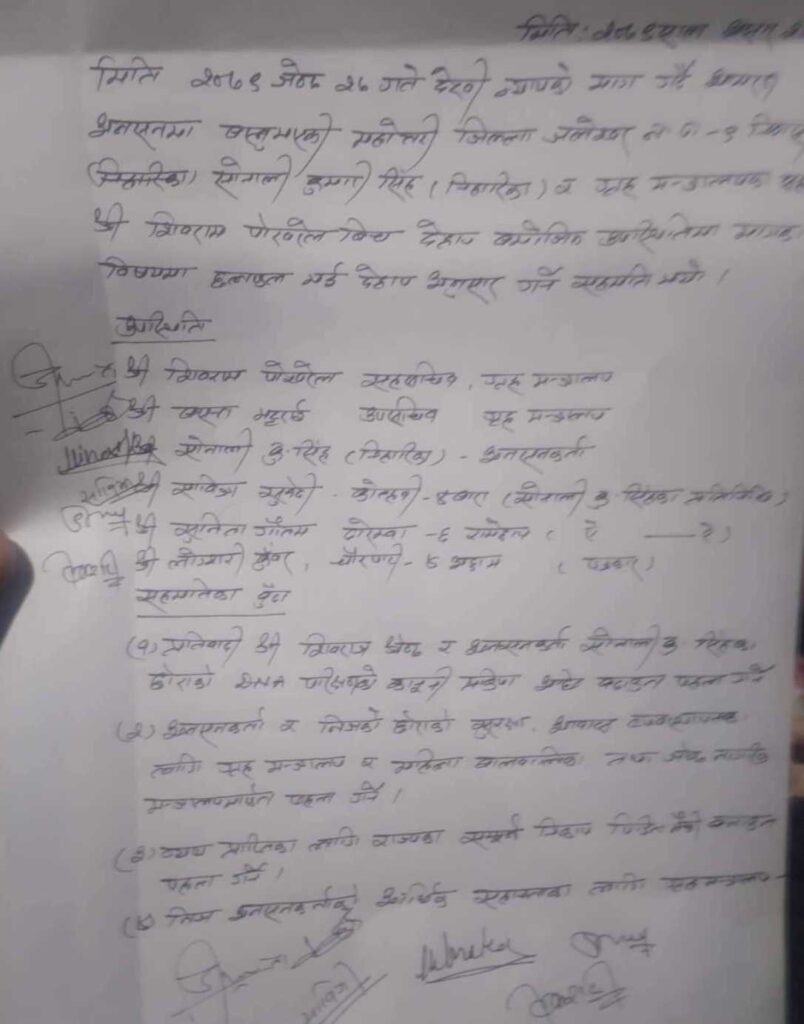 मिति : २०७९
मिति २०७९ जेठ २६ गते देखी न्यायको माग गर्दै आमरण
अनसनमा बस्नुभएको महोत्तरी जिल्ला जलेश्वर न.पा-१
(निहारिका) सोनाली कुमारी सिंह (निहारिका) र गृह मन्त्रालयका
श्री शिवराम पोखरेल बिच देहाय बमोजिम उपस्थितिमा मागका
विषयमा छलफल भई देहाय अनुसार गर्ने सहमति भयो ।
उपस्थिति
श्री शिवराम पोखरेल सहसचिव, गृह मन्त्रालय
श्री बसन्त भट्टराई उपसचिव गृह मन्त्रालय
श्री सोनाली कु. सिंह (निहारिका) - अनसनकर्ता
सावित्रा श्री सावित्रा सुवेदी - बारा (सोनाली कु. सिंहका प्रतिनिधि)
श्री सुनिता गौतम दोरम्बा -६ रामेछाप ( ऐ ऐ )
श्री कुँवर, चौरपाटी - ४ अछाम (पत्रकार)
सहमतिका बुँदा
(१) प्रतिवादी श्री शिवराज श्रेष्ठ र अनसनकर्ता सोनाली कु. सिंहका
छोराको DNA परिक्षणको कानूनी प्रक्रिया अघि बढाउन पहल गर्ने
(२) अनसनकर्ता र निजको छोराको सुरक्षा, आवास
लागि गृह मन्त्रालय र महिला बालबालिका तथा जेष्ठ नागरिक
मन्त्रालयमार्फत पहल गर्ने ।
(३) न्याय प्राप्तिका लागि राज्यका सम्पूर्ण निकाय पिडित मैत्री बनाउन
पहल गर्ने ।
(४) निज अनसनकर्ताको आर्थिक सहायताका लागि गृह मन्त्रालय
सावित्रा